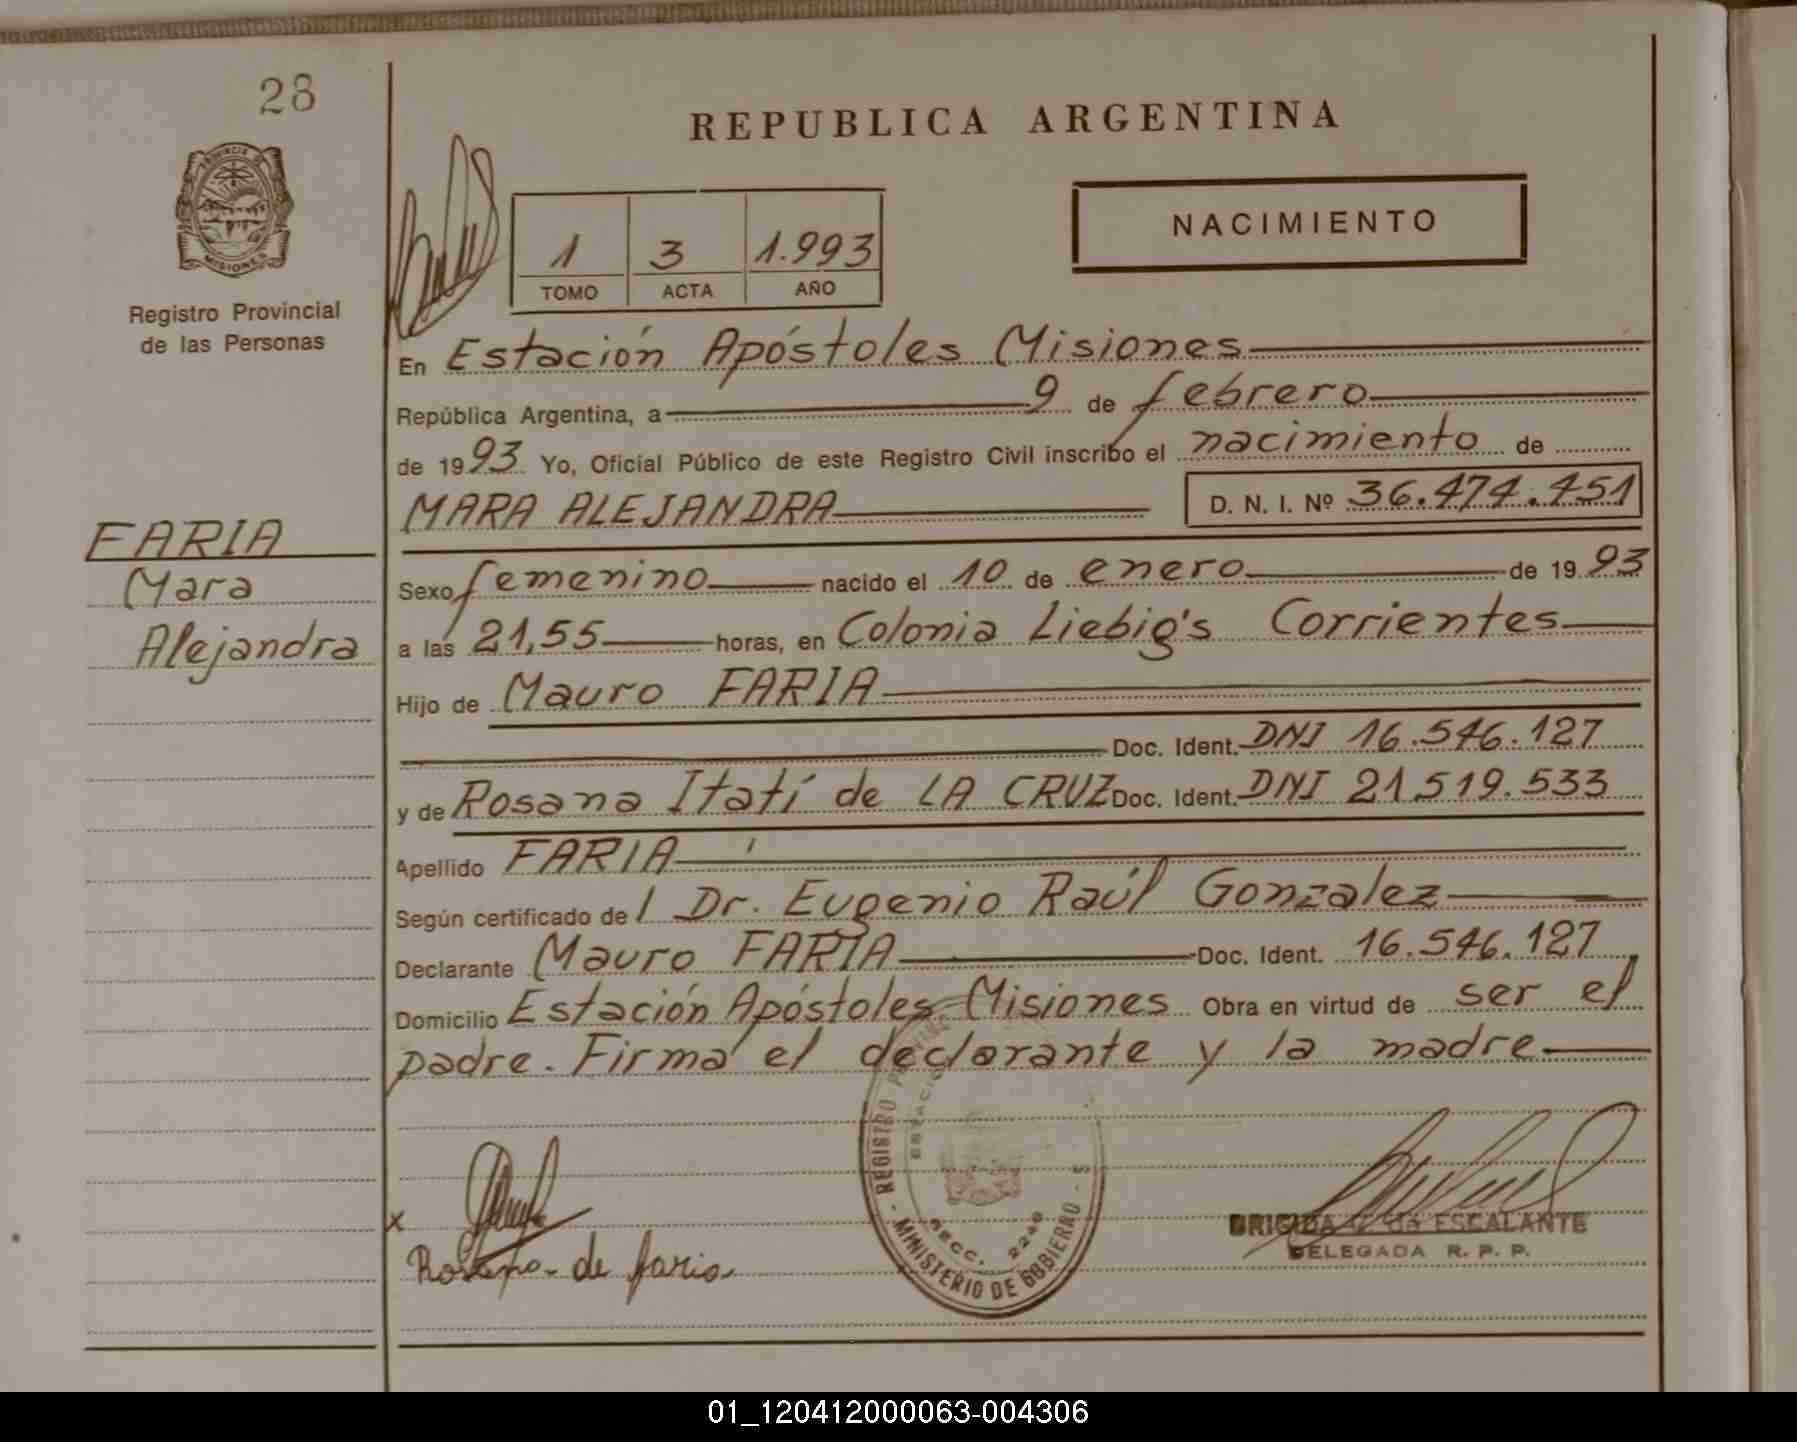 28
PROVINCIA DE
MISIONES
Registro Provincial
de las Personas
REPUBLICA ARGENTINA
1 3 1.993
TOMO ACTA AÑO
NACIMIENTO
En Estación Apóstoles Misiones
República Argentina, a 9 de febrero
de 1993 Yo, Oficial Público de este Registro Civil inscribo el nacimiento de
MARA ALEJANDRA D. N. I. Nº 36.474.451
FARIA
Mara
Alejandra
Sexo femenino nacido el 10 de enero de 1993
a las 21,55 horas, en Colonia Liebig's Corrientes
Hijo de Mauro FARIA
Doc. Ident. DNI 16.546.127
y de Rosana Itatí de LA CRUZ Doc. Ident. DNI 21.519.533
Apellido FARIA
Según certificado del Dr. Eugenio Raúl Gonzalez
Declarante Mauro FARIA Doc. Ident. 16.546.127
Domicilio Estación Apóstoles Misiones Obra en virtud de ser el
padre. Firma el declarante y la madre
REGISTRO
SECC. 2240
MINISTERIO DE GOBIERNO
x
de faria
BRIGIDA ESCALANTE
DELEGADA R. P. P.
01_120412000063-004306